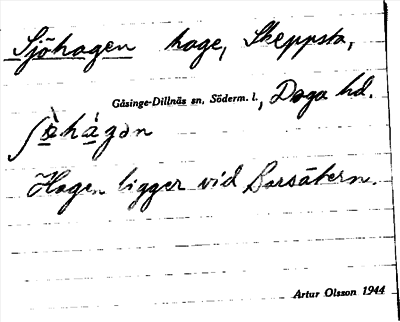 Sjöhagen hage, Skeppsta,
Gåsinge-Dillnäs sn, Söderm. l., Daga hd.
Hagen ligger vid Borsökern.
Artur Olsson 1944